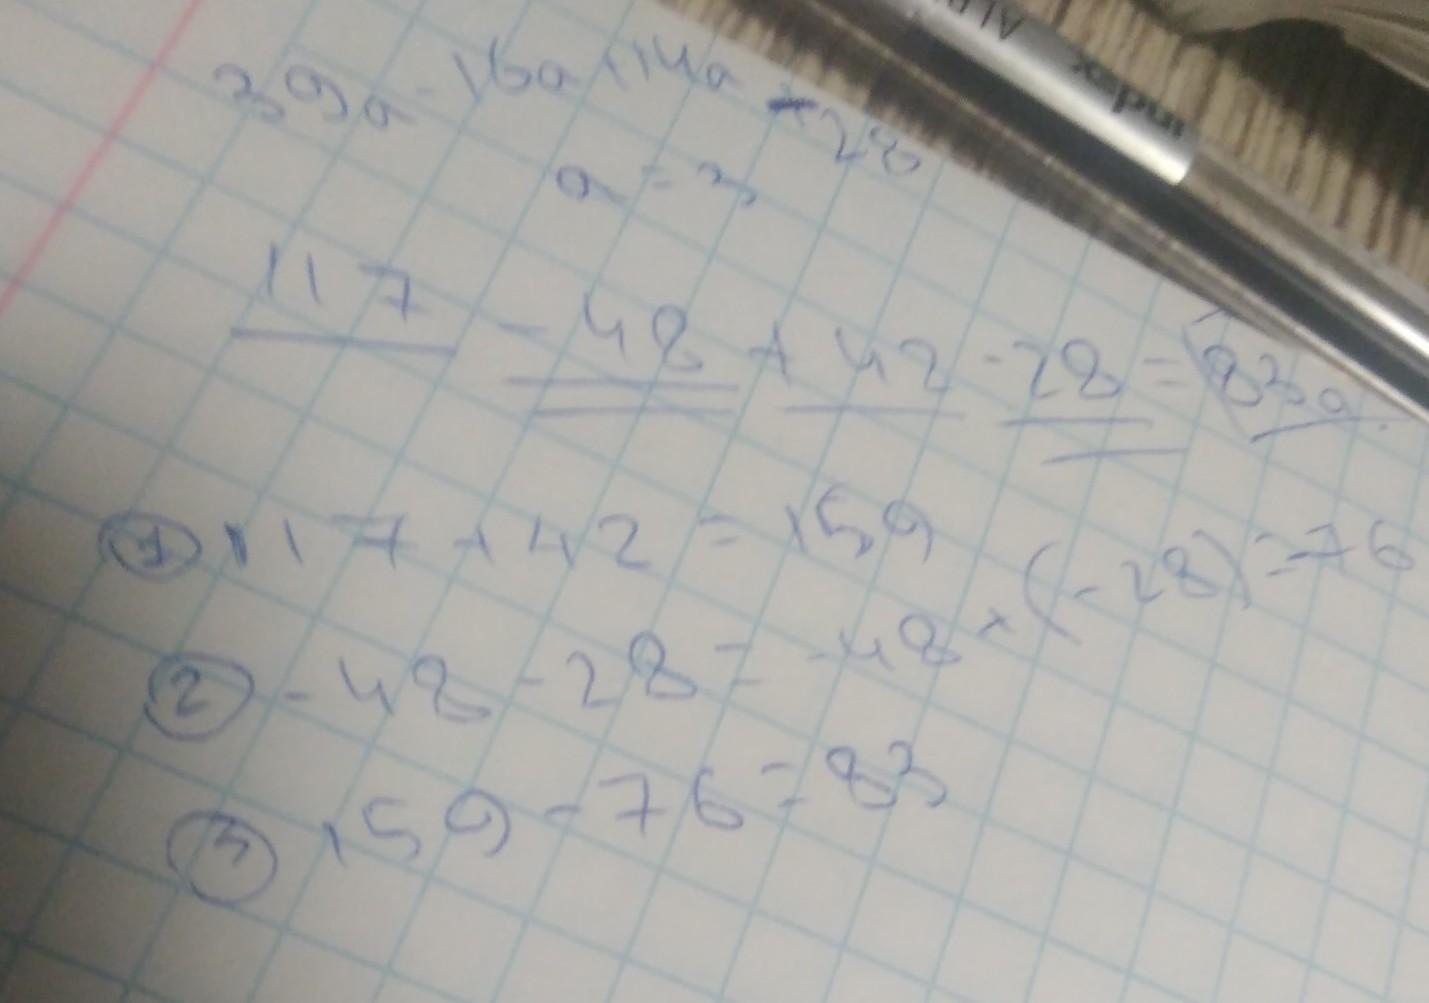 39a - 16a + 14a - 28
a = 3
117 - 48 + 42 - 28 = 83a
① 117 + 42 = 159
② - 48 - 28 = - 48 + (- 28) = -76
③ 159 - 76 = 83
index